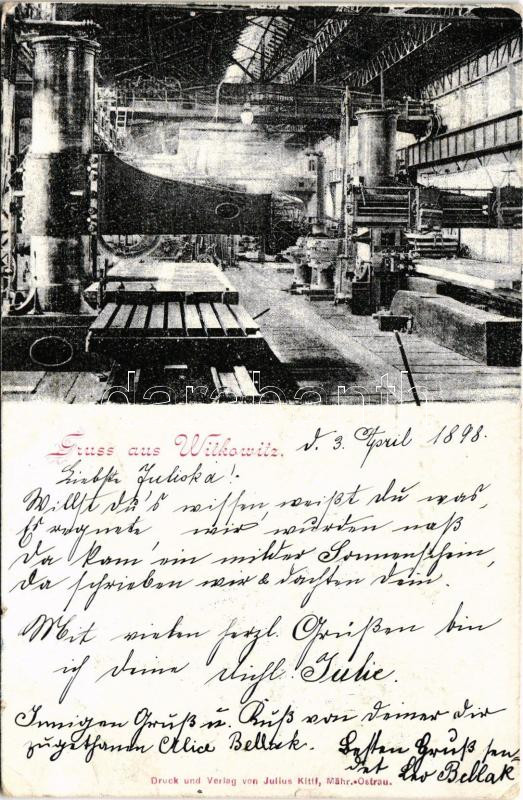 darabanth.com
Gruss aus Witkowitz. d. 3. April 1898.
Liebste Juliska!
Willst du's wissen weißt du was,
Es regnete wir wurden naß
Da kam ein milder Sonnenschein,
Da schrieben wir & dachten dein.
Mit vielen herzl. Grüßen bin
ich deine Julie.
Innigen Gruß u. Kuß von deiner dir
zugethanen Alice Bellak. Besten Gruß sen-
det Leo Bellak
Druck und Verlag von Julius Kittl, Mähr.-Ostrau.